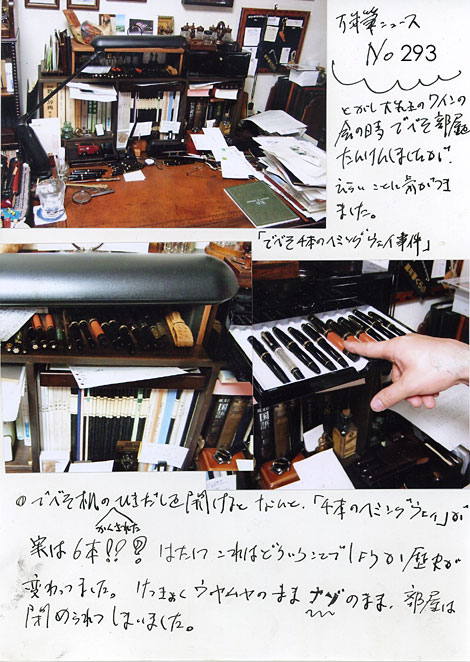 万年筆ニュース
No 293
とがし大先生のワインの
会の時 でべそ部屋
たんけんしましたが、
えらいことに気がつき
ました。
「でべそ4本のヘミングウェイ事件」
でべそ机のひきだしを開けるとなんと、「4本のヘミングウェイ」が
かくされた
実は6本!?? はたしてこれはどういうことでしょうか 歴史が
変わってました。けっきょくウヤムヤのまま ナゾのまま、部屋は
閉められてしまいました。